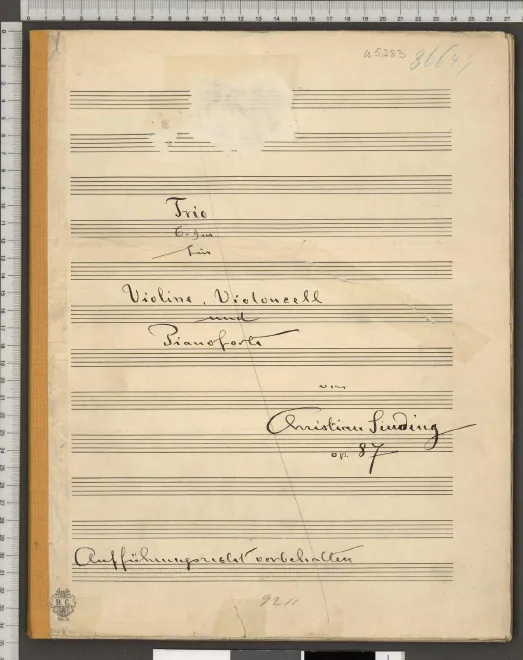 a5283
Trio
C-dur
für
Violine, Violoncell
und
Pianoforte
von
Christian Sinding
op. 87
Aufführungsrecht vorbehalten
9211